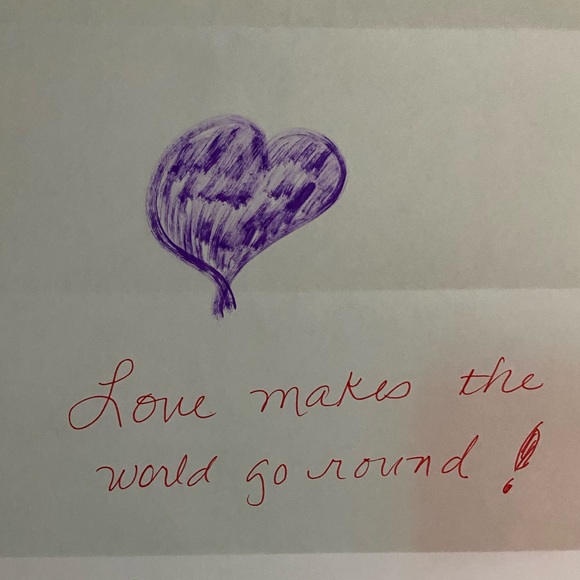 Love makes the
world go round!